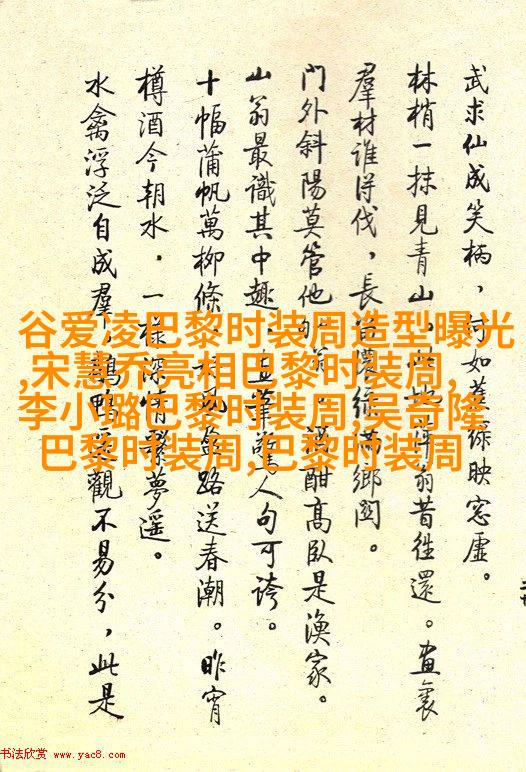 谷爱凌巴黎时装周造型曝光
,宋慧乔亮相巴黎时装周,
李小璐巴黎时装周,吴奇隆
巴黎时装周,巴黎时装周
武求仙成笑柄，何如蕉綠映窓虛。
林梢一抹見青山，此地萍翁昔往還。畫裏
羣材誰得伐，長宜濃綠滿鄉関。
門外斜陽莫管他，翁酣高臥是漁家。
山翁最識其中趣，筆驚人句可誇。
十幅蒲帆萬柳條，好風路送春潮。昨宵
樽酒今朝水，一樣深情繫夢遥。
水禽浮泛自成羣，鵝鴨觀不易分，此是
书法欣赏 www.yac8.com